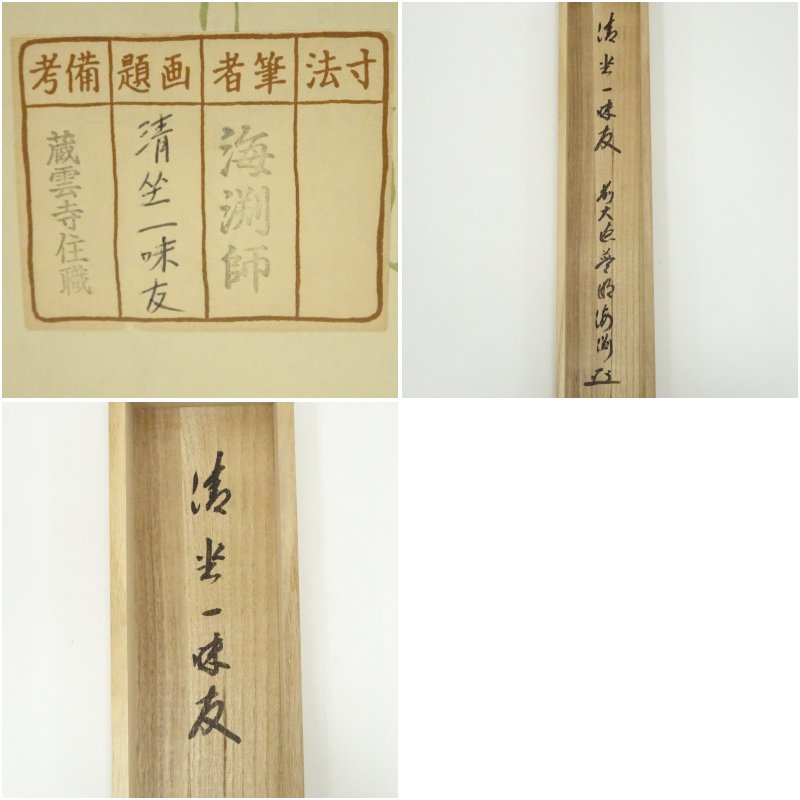 寸法
筆者
画題
備考
海渕師
清坐一味友
蔵雲寺住職
清坐一味友
前大徳
海渕
清坐一味友